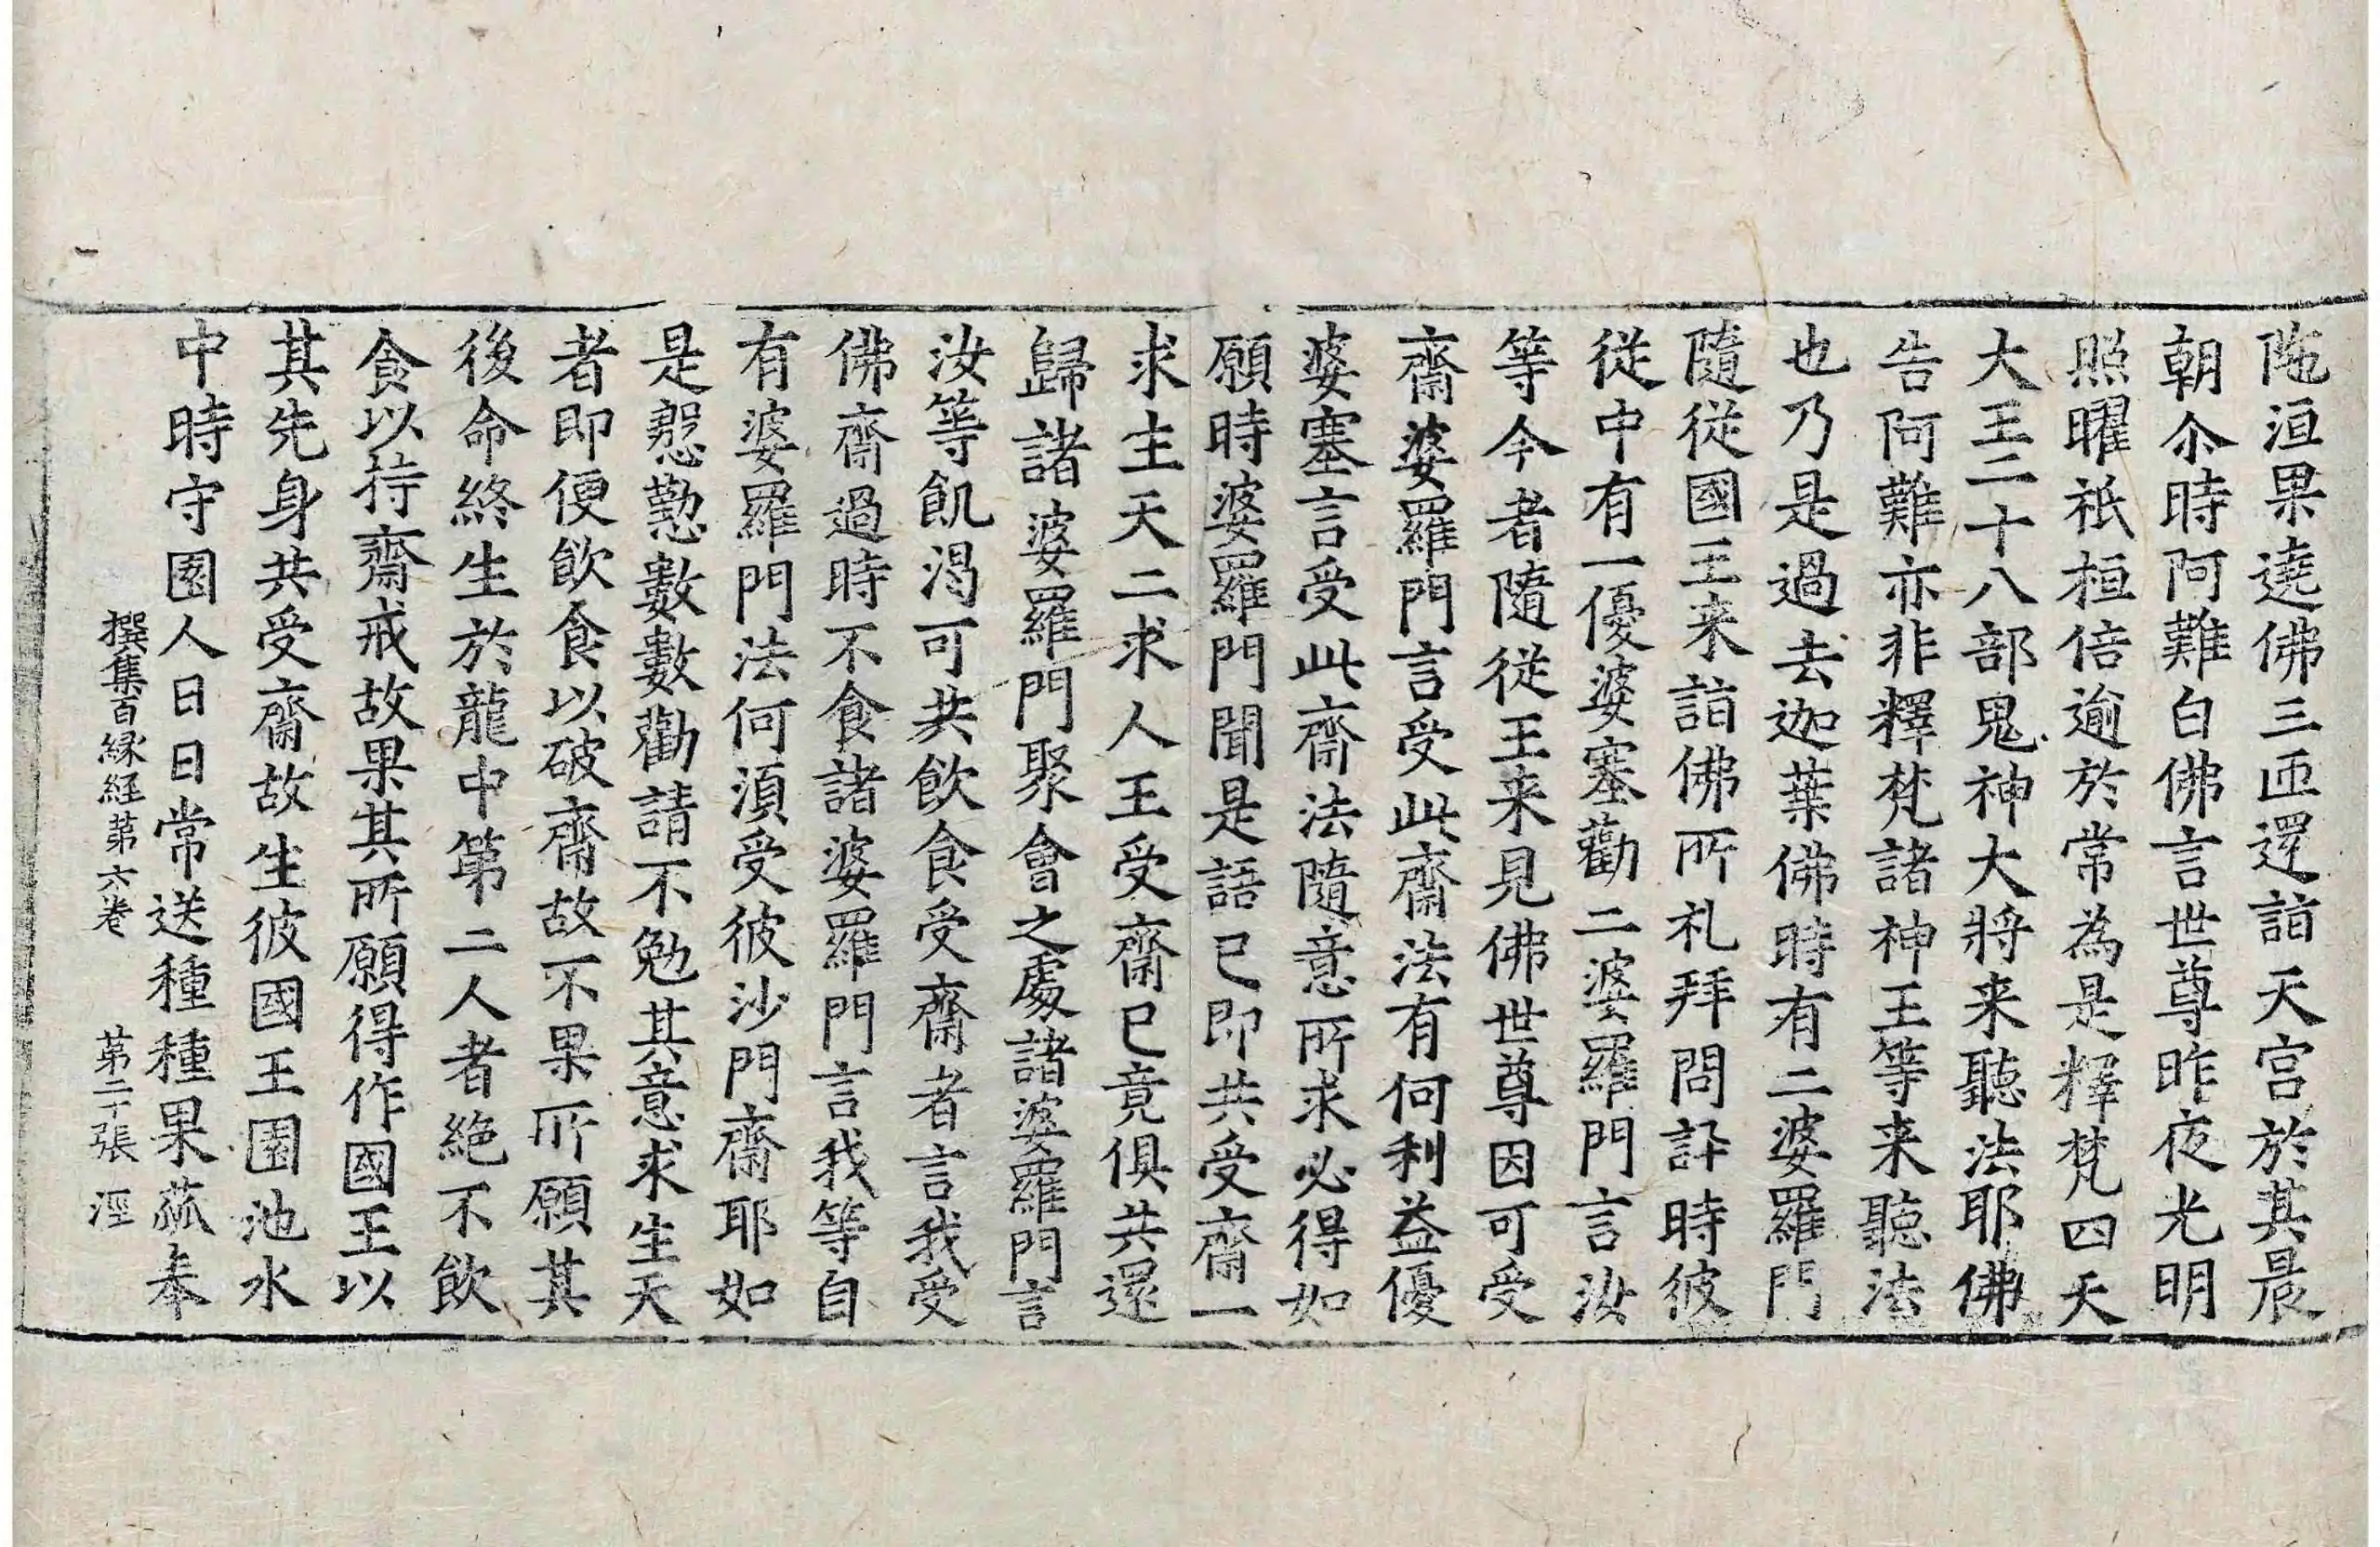 陁洹果遶佛三匝還詣天宮於其晨
朝尒時阿難白佛言世尊昨夜光明
照曜祇桓倍逾於常為是釋梵四天
大王二十八部鬼神大將来聽法耶佛
告阿難亦非釋梵諸神王等来聽法
也乃是過去迦葉佛時有二婆羅門
隨從國王来詣佛所礼拜問訊時彼
從中有一優婆塞勸二婆羅門言汝
等今者隨從王来見佛世尊因可受
齋婆羅門言受此齋法有何利益優
婆塞言受此齋法隨意所求必得如
願時婆羅門聞是語已即共受齋一
求生天二求人王受齋已竟俱共還
歸諸婆羅門聚會之處諸婆羅門言
汝等飢渴可共飲食受齋者言我受
佛齋過時不食諸婆羅門言我等自
有婆羅門法何須受彼沙門齋耶如
是慇懃數數勸請不勉其意求生天
者即便飲食以破齋故不果所願其
後命終生於龍中第二人者絶不飲
食以持齋戒故果其所願得作國王以
其先身共受齋故生彼國王園池水
中時守園人日日常送種種果蓏奉
撰集百緣経第六卷 第二十張 涇